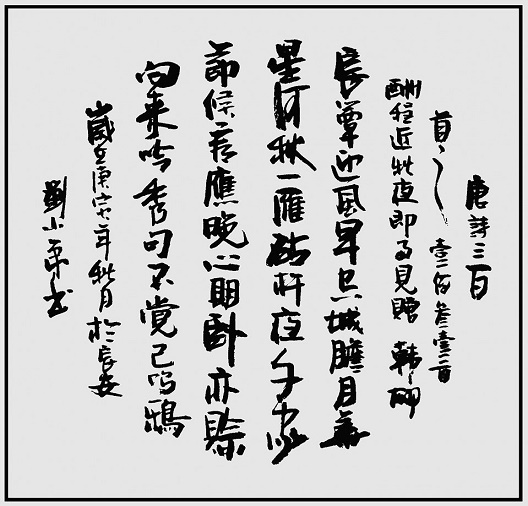 唐詩三百
首之 壹佰叁壹首
酬程近秋夜即事見贈 韩翃
長簟迎風早空城膽月華
星河秋一雁砧杵夜千家
節候看應晚心期卧亦賒
向来吟秀句不覺已鸣鴉
歲在庚年秋月於長安
劉小平书